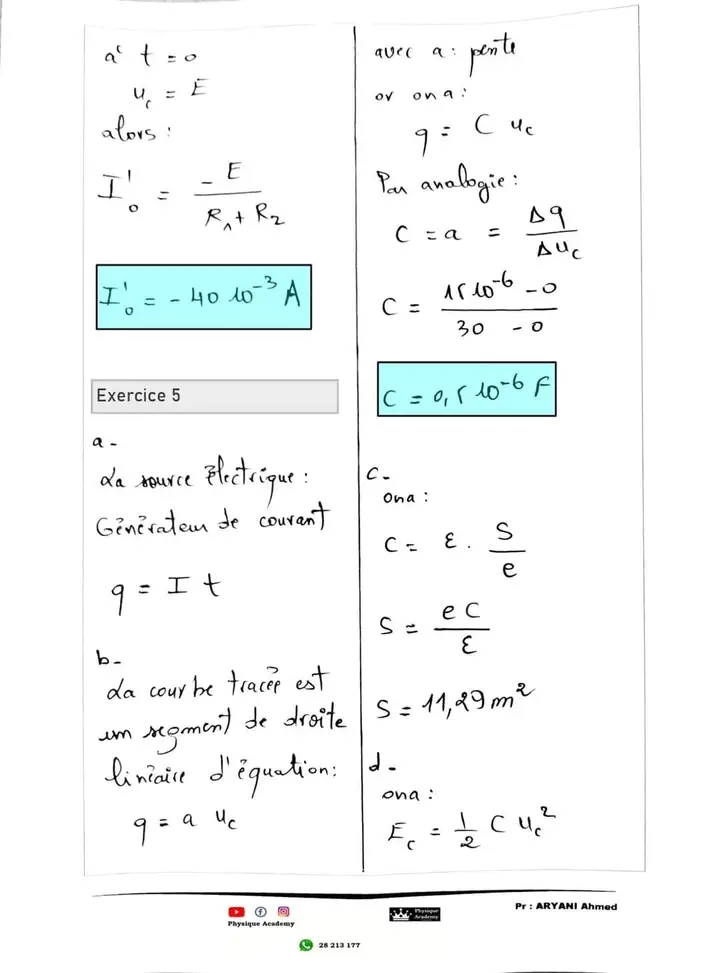 à t = 0
u_c = E
alors :
I'_0 = -E / (R_1 + R_2)
I'_0 = - 40 10^-3 A
Exercice 5
a -
La source électrique :
Générateur de courant
q = I t
b -
La courbe tracée est
un segment de droite
linéaire d'équation :
q = a u_c
avec a : pente
or on a :
q = C u_c
Par analogie :
C = a = Δq / Δu_c
C = (15 10^-6 - 0) / (30 - 0)
C = 0,5 10^-6 F
c -
on a :
C = ε . S / e
S = e C / ε
S = 11,29 m²
d -
on a :
E_c = 1/2 C u_c²
Physique Academy
Physique
Academy
Pr : ARYANI Ahmed
28 213 177